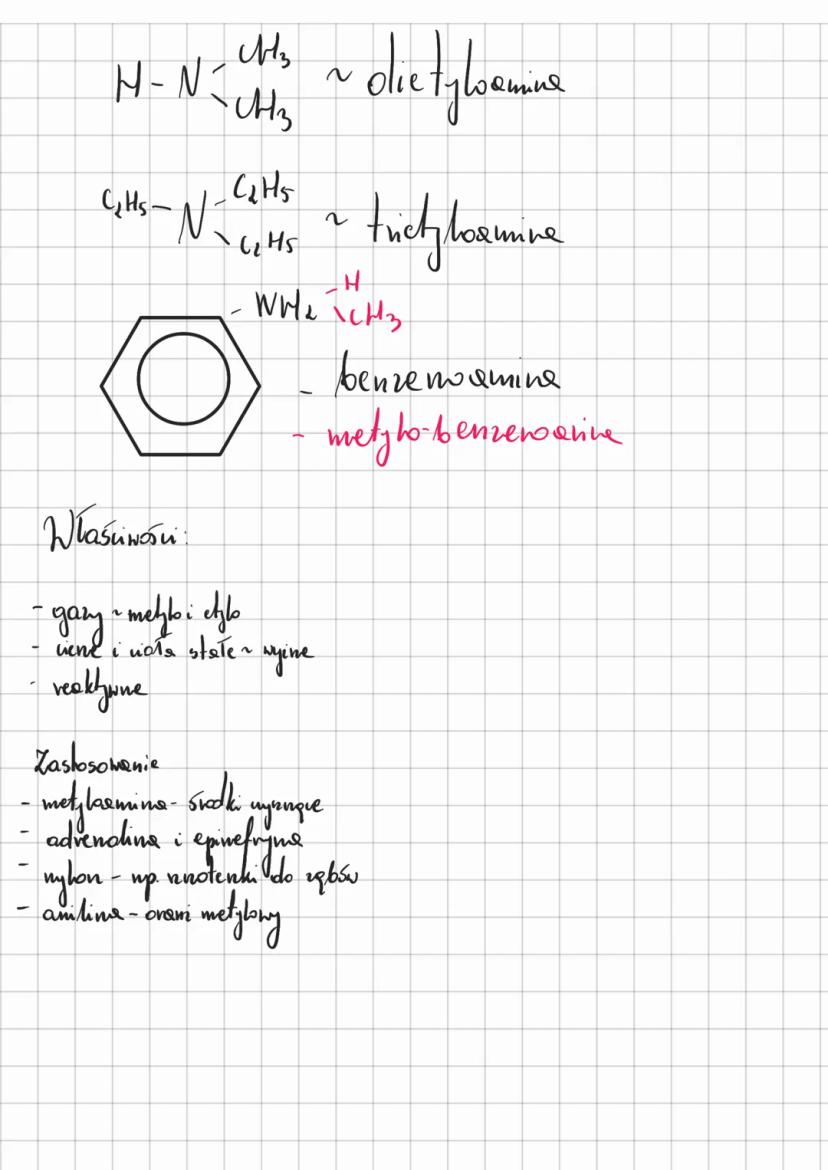 H-N CH3 CH3 ~ dietyloamina
C2H5-N C2H5 C2H5 ~ trietyloamina
- NH2 H CH3
- benzenoamina
- metylo-benzenoamina
Właściwości:
- gazy ~ metylo i etylo
- ciekłe i ciała stałe ~ wyższe
- reaktywne
Zastosowanie
- metyloamina - środki myjące
- adrenalina i epinefryna
- nylon - np. do zębów
- anilina - oranż metylowy